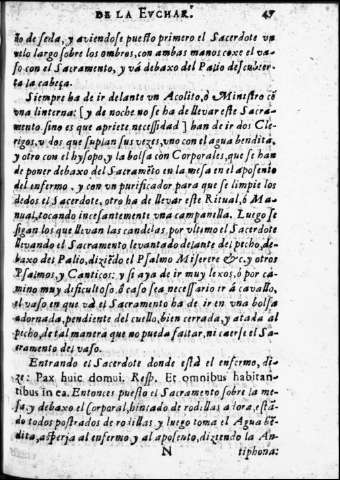 DE LA EVCHAR. 47
ño de seda, y aviendose puesto primero el Sacerdote un
velo largo sobre los ombros, con ambas manos coxe el va-
so con el Sacramento, y vá debaxo del Palio descubier-
ta la cabeça.
Siempre ha de ir delante vn Acolito, ò Ministro cõ
vna linterna: [y de noche no se ha de llevar este Sacra-
mento sino es que apriete necessidad] han de ir dos Cle-
rigos, v dos que suplan sus vezes, vno con el agua bendita,
y otro con el hysopo, y la bolsa con Corporales, que se han
de poner debaxo del Sacramẽto en la mesa en el aposento
del enfermo, y con vn purificador para que se limpie los
dedos el Sacerdote, otro ha de llevar este Ritual, ò Ma-
nual, tocando incesantemente vna campanilla. Luego se
sigan los que llevan las candelas, por vltimo el Sacerdote
llevando el Sacramento levantado delante del pecho, de-
baxo del Palio, diziẽdo el Psalmo Miserere &c. y otros
Psalmos, y Canticos: y si aya de ir muy lexos, ò por ca-
mino muy dificultoso, ò caso sea necessario ir á cavallo,
el vaso en que vá el Sacramento ha de ir en vna bolsa
adornada, pendiente del cuello, bien cerrada, y atada al
pecho, de tal manera que no pueda faltar, ni caerse el Sa-
cramento del vaso.
Entrando el Sacerdote donde está el enfermo, di-
ze: Pax huic domui. Resp. Et omnibus habitan-
tibus in ea. Entonces puesto el Sacramento sobre la me-
sa, y debaxo el Corporal, hincado de rodillas adora, está-
do todos postrados de rodillas y luego toma el Agua bẽ-
dita, asperja al enfermo, y al aposento, diziendo la An-
N tiphona: